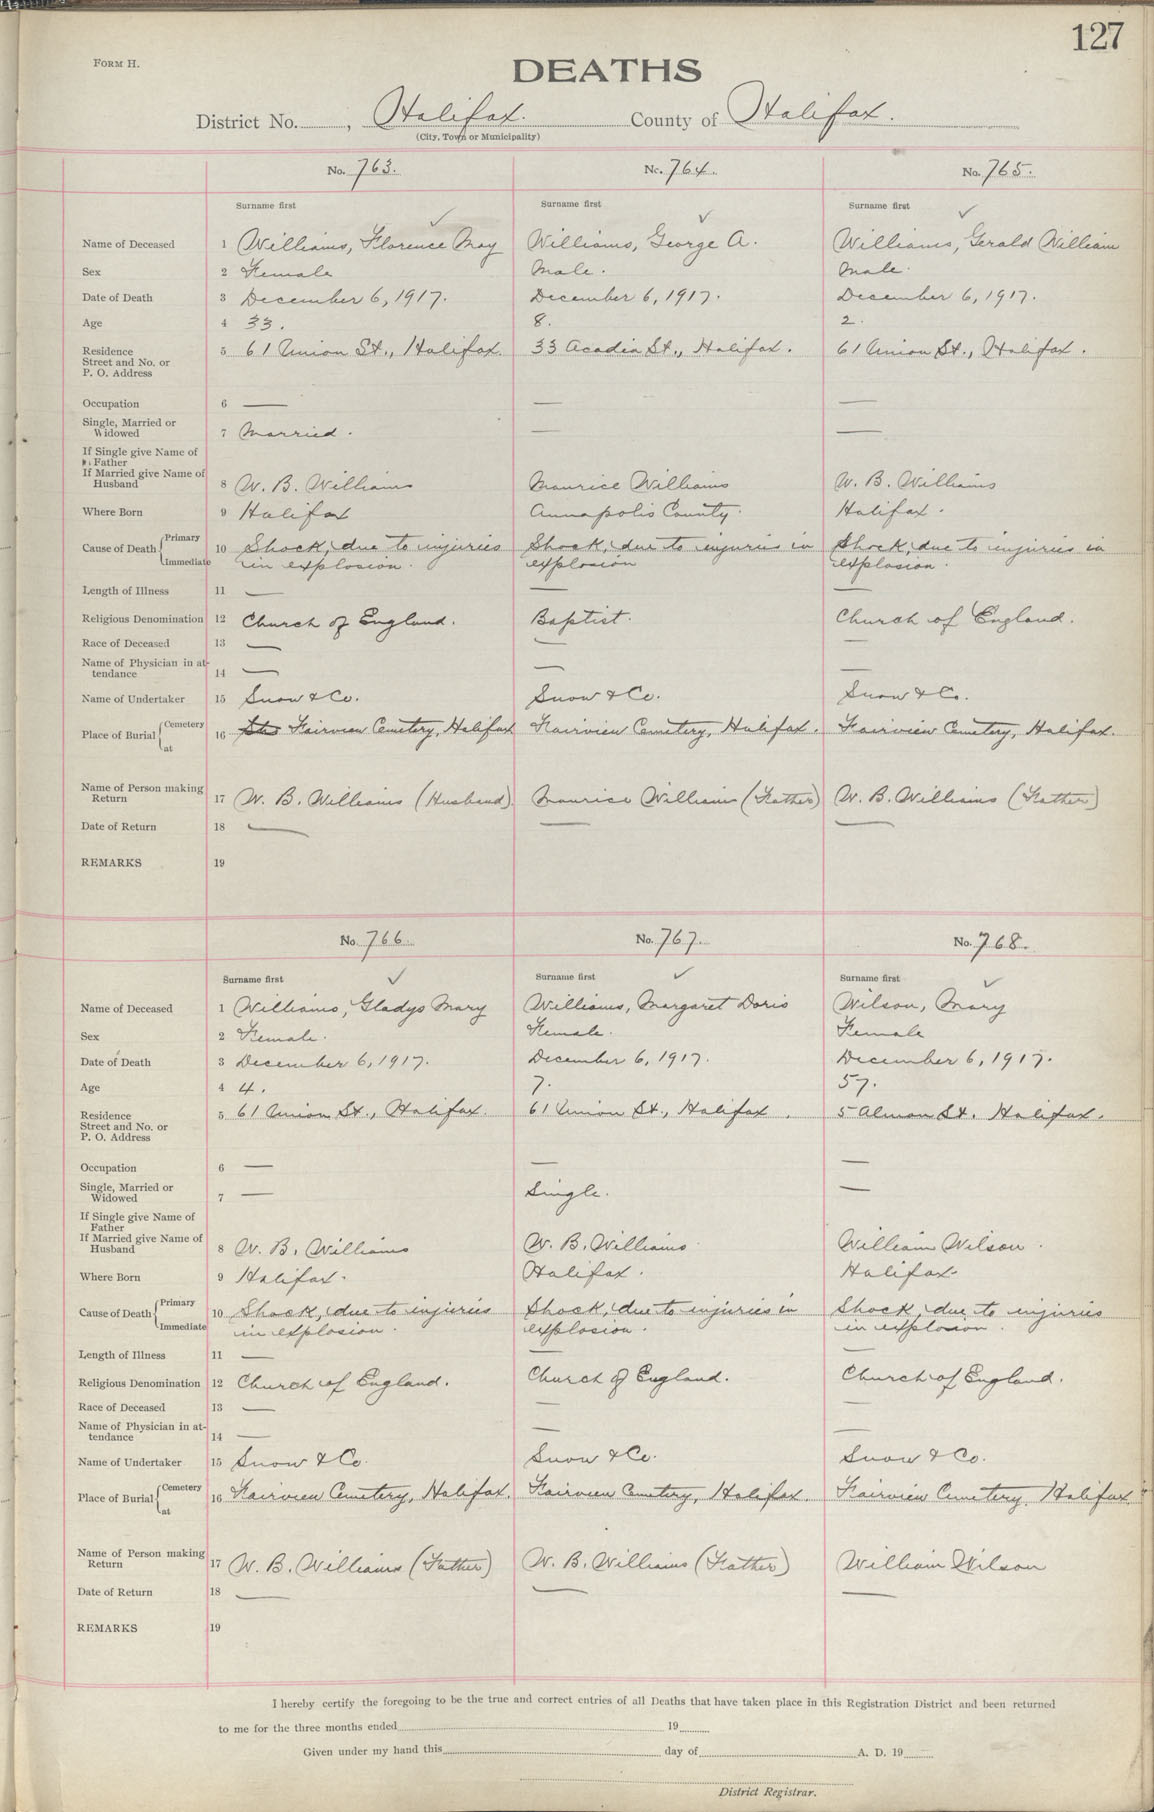 127
FORM H.
DEATHS
District No. , Halifax. County of Halifax.
(City, Town or Municipality)
No. 763. No. 764. No. 765.
Surname first Surname first Surname first
Name of Deceased 1 Williams, Florence May Williams, George A. Williams, Gerald William
Sex 2 Female Male. Male.
Date of Death 3 December 6, 1917. December 6, 1917. December 6, 1917.
Age 4 33. 8. 2.
Residence 5 61 Union St., Halifax. 33 Acadia St., Halifax. 61 Union St., Halifax.
Street and No. or
P. O. Address
Occupation 6 — — —
Single, Married or
Widowed 7 Married. — —
If Single give Name of
Father
If Married give Name of
Husband 8 W. B. Williams Maurice Williams W. B. Williams
Where Born 9 Halifax Annapolis County. Halifax.
Cause of Death { Primary Immediate 10 Shock, due to injuries Shock, due to injuries in Shock, due to injuries in
in explosion. explosion explosion.
Length of Illness 11 — — —
Religious Denomination 12 Church of England. Baptist. Church of England.
Race of Deceased 13 — — —
Name of Physician in at-
tendance 14 — — —
Name of Undertaker 15 Snow & Co. Snow & Co. Snow & Co.
Place of Burial { Cemetery at 16 Fairview Cemetery, Halifax Fairview Cemetery, Halifax. Fairview Cemetery, Halifax.
Name of Person making
Return 17 W. B. Williams (Husband) Maurice Williams (Father) W. B. Williams (Father)
Date of Return 18 — — —
REMARKS 19
No. 766. No. 767. No. 768.
Surname first Surname first Surname first
Name of Deceased 1 Williams, Gladys Mary Williams, Margaret Doris Wilson, Mary
Sex 2 Female. Female. Female
Date of Death 3 December 6, 1917. December 6, 1917. December 6, 1917.
Age 4 4. 7. 57.
Residence 5 61 Union St., Halifax. 61 Union St., Halifax. 5 Almon St. Halifax.
Street and No. or
P. O. Address
Occupation 6 — — —
Single, Married or
Widowed 7 — Single. —
If Single give Name of
Father
If Married give Name of
Husband 8 W. B. Williams W. B. Williams William Wilson.
Where Born 9 Halifax. Halifax. Halifax.
Cause of Death { Primary Immediate 10 Shock, due to injuries Shock, due to injuries in Shock, due to injuries
in explosion. explosion. in explosion.
Length of Illness 11 — — —
Religious Denomination 12 Church of England. Church of England. Church of England.
Race of Deceased 13 — — —
Name of Physician in at-
tendance 14 — — —
Name of Undertaker 15 Snow & Co. Snow & Co. Snow & Co.
Place of Burial { Cemetery at 16 Fairview Cemetery, Halifax. Fairview Cemetery, Halifax. Fairview Cemetery, Halifax
Name of Person making
Return 17 W. B. Williams (Father) W. B. Williams (Father) William Wilson
Date of Return 18 — — —
REMARKS 19
I hereby certify the foregoing to be the true and correct entries of all Deaths that have taken place in this Registration District and been returned
to me for the three months ended 19
Given under my hand this day of A. D. 19
District Registrar.